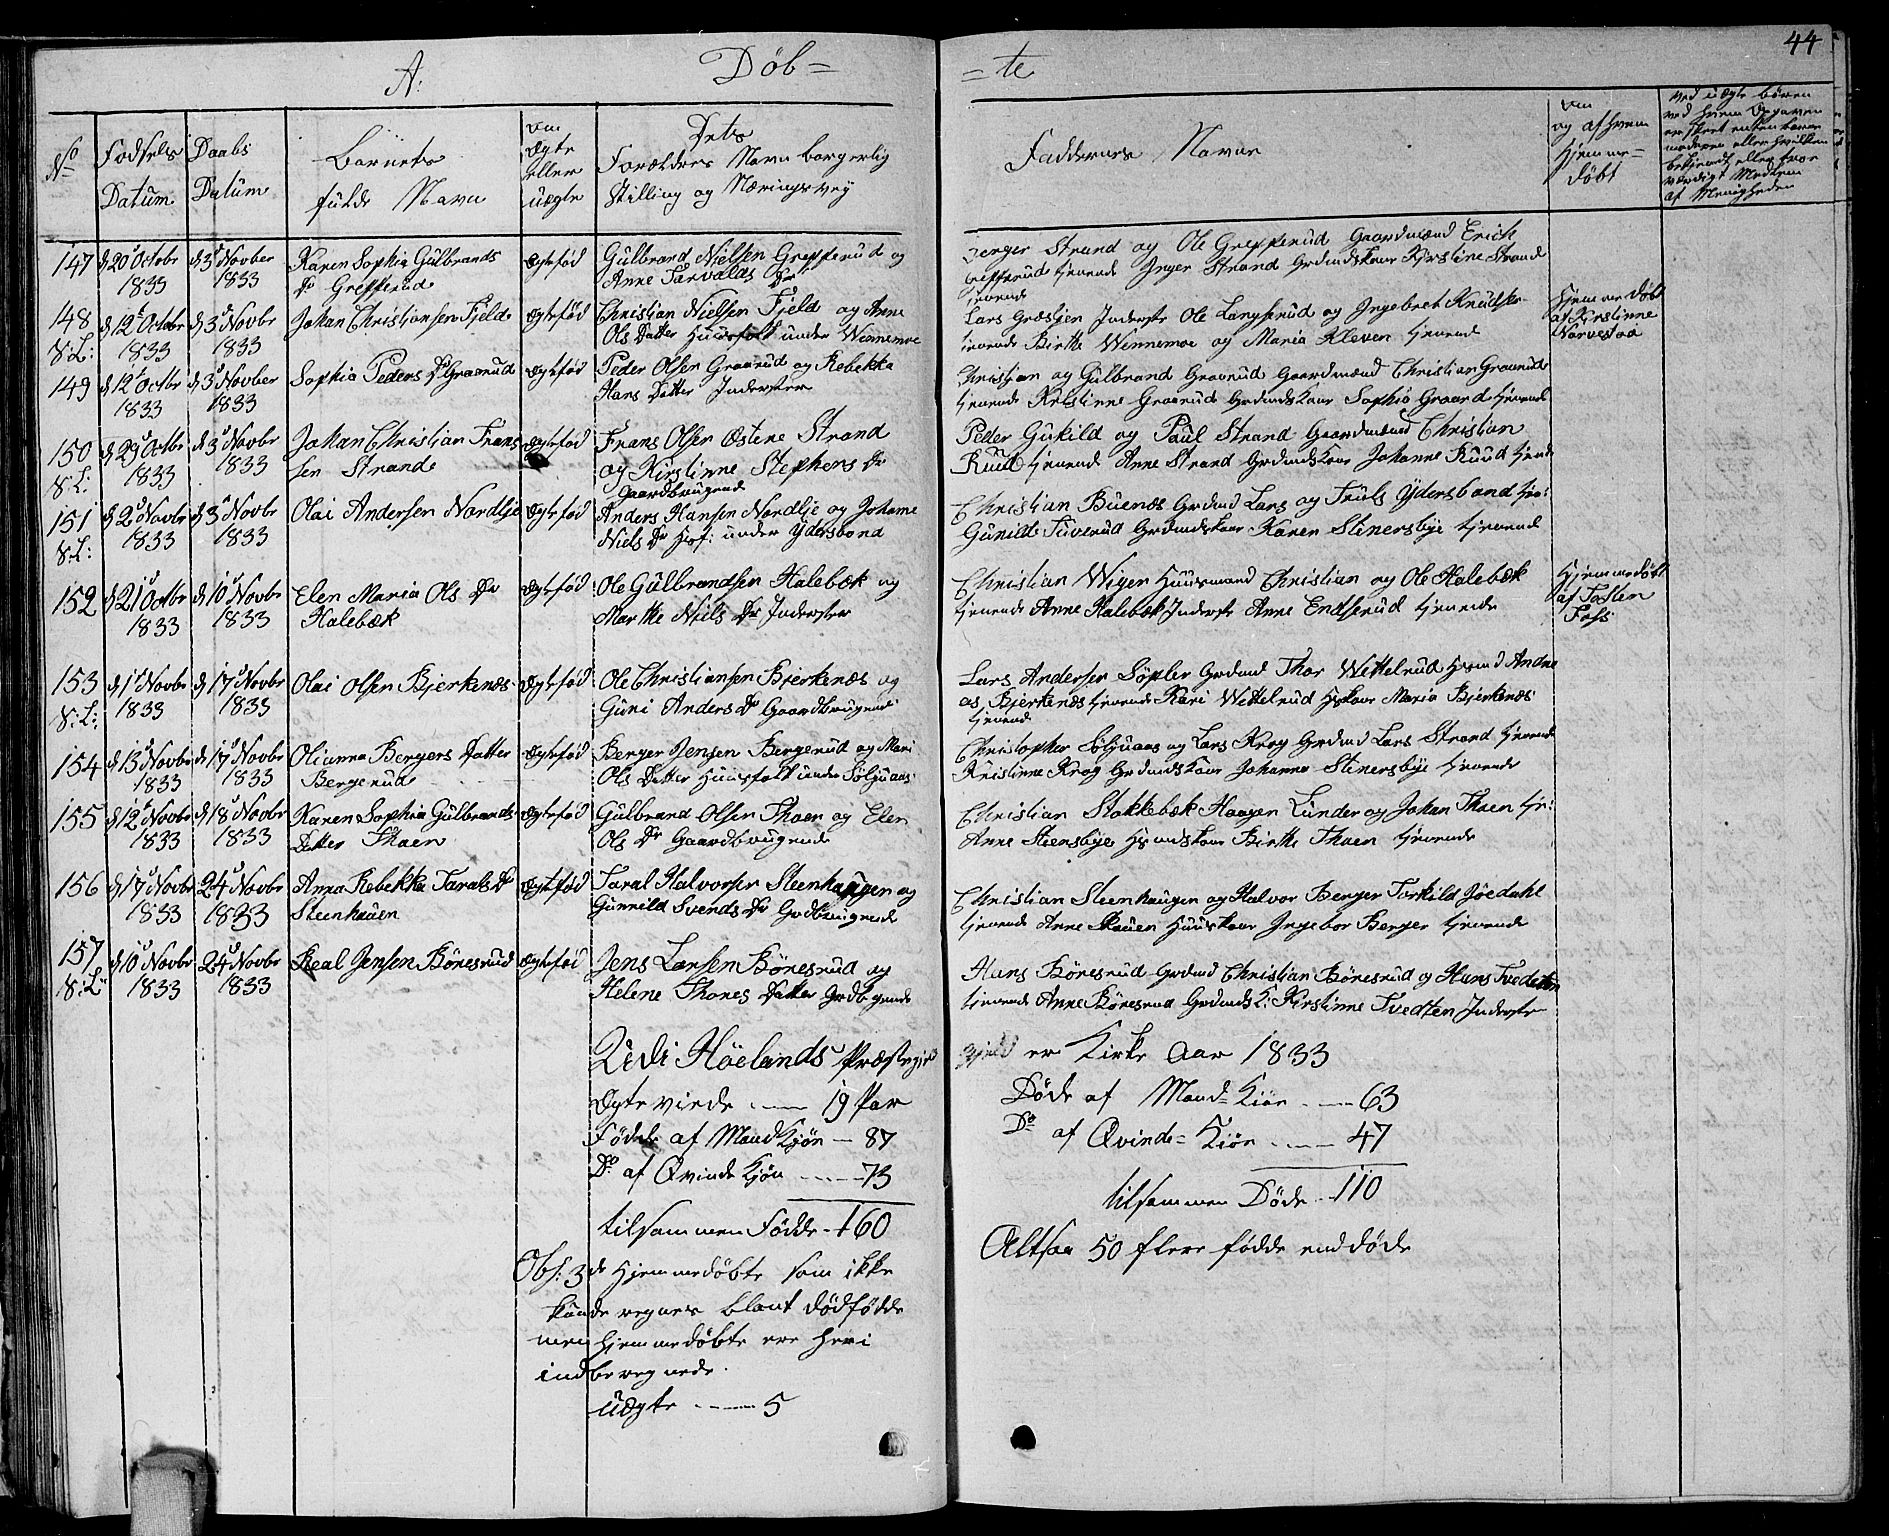 44
A:
Døb =
= te
No
Fødsels Datum
Daabs Datum
Barnets fulde Navn
Om Ægte eller uægte
Dets Forældres Navn borgerlig Stilling og Næringsvej
Faddernes Navne
Om og af hvem Hjemme= døbt
Ved uægte børen ved hvem Opgaven er skeet enten barnemoderen eller hvilken bekjendt eller troeværdigt Medlem af Menigheden
147
d 20 Octobr 1833
d 3 Novber 1833
Karen Sophia Gulbrands Dr Grefferud
ægtefød
Gulbrand Nielsen Grefferud og
Anne Tarvalds Dr
Berger Strand og Ole Grefferud Gaardmænd Erich
Grefferud tjenende Inger Strand Grdmdskone Kjrstine Strand
tjenende
148
S: L:
d 12 Octobr 1833
d 3 Novbr 1833
Johan Christiansen Fjeld
ægtefød
Christian Nielsen Fjeld og Anne
Ols Datter Huusfolk under Wennemoe
Lars Græsjen Inderste Ole Langserud og Ingebret Knudse-
tjenende Birthe Wennemoe og Maria Kleven tjenende
Hjemmedøbt af Kirstinne
149
d 12 Octbr 1833
d 3 Novber 1833
Sophia Peders Dr Graarud
ægtefød
Peder Olsen Graarud og Rebekka
Hans Datter Inderster
Christian og Gulbrand Graarud Gaardmænd Christian Graarud
tjenende Kristinne Graarud Grdmdskone Sophia Graarud tjenende
150
S: L:
d 29 Octbr 1833
d 3 Novbr 1833
Johan Christian Frans
sen Strande
ægtefød
Frans Olsen Østene Strand
og Kirstinne Stephens Dr
Gaardbrugende
Peder Gukild og Paul Strand Gaardmænd Christian
Ruud tjenende Anne Strand Grdmdskone Johanne Ruud tjende
151
S: L:
d 2 Novbr 1833
d 3 Novbr 1833
Olai Andersen Nordlie
ægtefød
Anders Hansen Nordlje og Johanne
Niels Dr Hsf: under Ydersbond
Christian Buenæs Grdmd Lars og Truls Ydersbond tje:
Gunild Tuverud Grdmdskone Karen Stinersbye tjenende
152
d 21 Octbr 1833
d 10 Novbr 1833
Elen Maria Ols Dr
Halebæk
ægtefød
Ole Gulbrandsen Halebæk og
Marthe Niels Dr Inderster
Christian Wiger Huusmand Christian og Ole Halebæk
tjenende Anne Halebæk Inderste Anne Endserud tjenende
Hjemmedøbt af Fosten Foss
153
S: L:
d 1 Novbr 1833
d 17 Novbr 1833
Olai Olsen Bjerkenæs
ægtefød
Ole Christiansen Bierkenæs og
Guni Anders Dr Gaardbrugende
Lars Andersen Søpler Grdmd Thor Wettelrud Hsmd Andre
as Bjerkenæs tjenende Kari Wettelrud Hskone Maria Bjerkenæs
tjenende
154
d 13 Novbr 1833
d 17 Novbr 1833
Olianna Bergers Datter
Bergerud
ægtefød
Berger Jensen Bergerud og Mari
Ols Datter Huusfolk under Søljuaas
Christopher Søljuaas og Lars Krog Grdmd Lars Strand tjenende
Kristinne Krog Grdmdskone Johanne Stinersbye tjenende
155
d 12 Novbr 1833
d 18 Novbr 1833
Karen Sophia Gulbrands
Datter Thoen
ægtefød
Gulbrand Olsen Thoen og Elen
Ols Dr Gaardbrugende
Christian Stokkebæk Haagen Lunder og Johan Thoen tje:
Anne Steensbye Hsmdskone Birthe Thoen tjenende
156
d 17 Novbr 1833
24 Novbr 1833
Anna Rebekka Tarals Dr
Steenhauen
ægtefød
Taral Halvorsen Steenhaugen og
Gunnild Svends Dr Grdbrugende
Christian Steenhaugen og Halvor Berger Torkild Joedahl
tjenende Anne Skauen Huuskone Ingebor Berger tjenende
157
S: L:
d 10 Novbr 1833
24 Novbr 1833
Real Jensen Bönesrud
ægtefød
Jens Larsen Bönesrud og
Helene Thores Datter Grdbrgende
Hans Bönesrud Grdmd Christian Bönesrud og Hans Tvedeten
tjenende Anne Bönesrud Grdmdsk: Kirstinne Tvedten Inderste
Udi Høelands Præstegjeld er Kirke Aar 1833
Ægteviede — 19 Par
Fødde af Mandkjøn — 87
Do af Qvindekjøn — 73
tilsammen Fødde — 160
Obs: 3de Hjemmedøbte som ikke
kunde regnes blant dødfødde
men hjemmedøbte ere heri
indberegnede.
uægte — 5
Døde af Mand=Kiön — 63
Do af Qvinde=Kiön — 47
tilsammen Døde — 110
Altsaa 50 flere fødde end døde